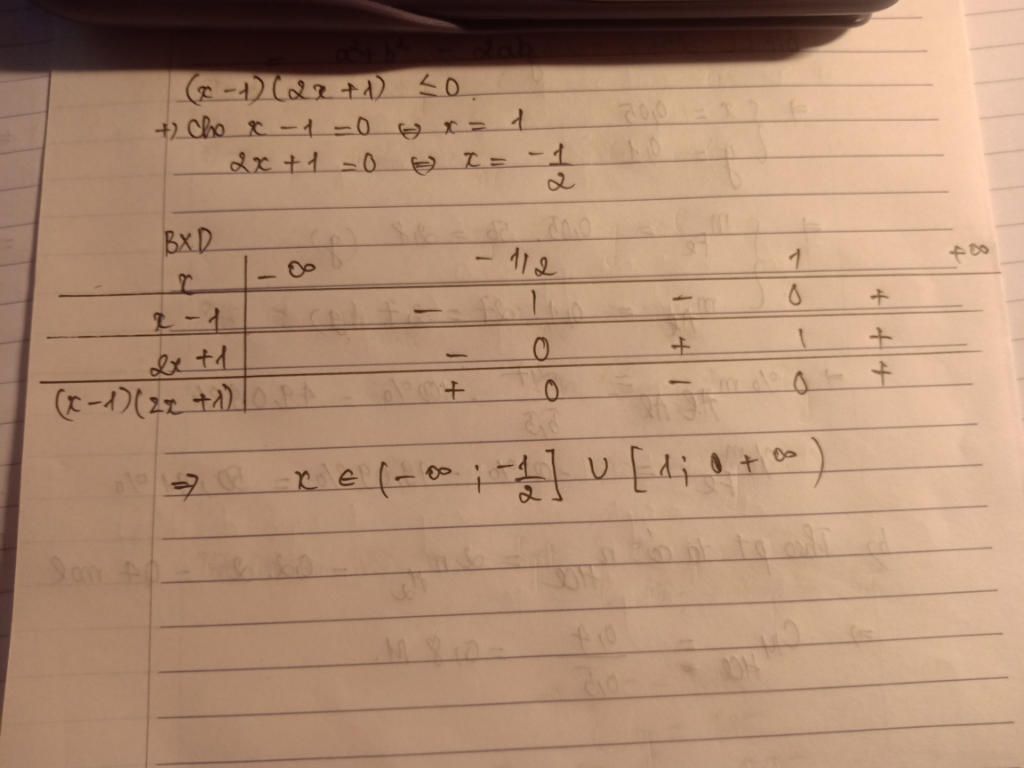 (x-1)(2x+1) ≤0.
+) Cho x-1=0 ⇔ x= 1
2x+1=0 ⇔ x= -1/2
BXD
x | -∞ -1/2 1 +∞
x-1 | - | - 0 +
2x+1 | - 0 + | +
(x-1)(2x+1) | + 0 - 0 +
⇒ x ∈ (-∞ ; -1/2] ∪ [1; +∞)